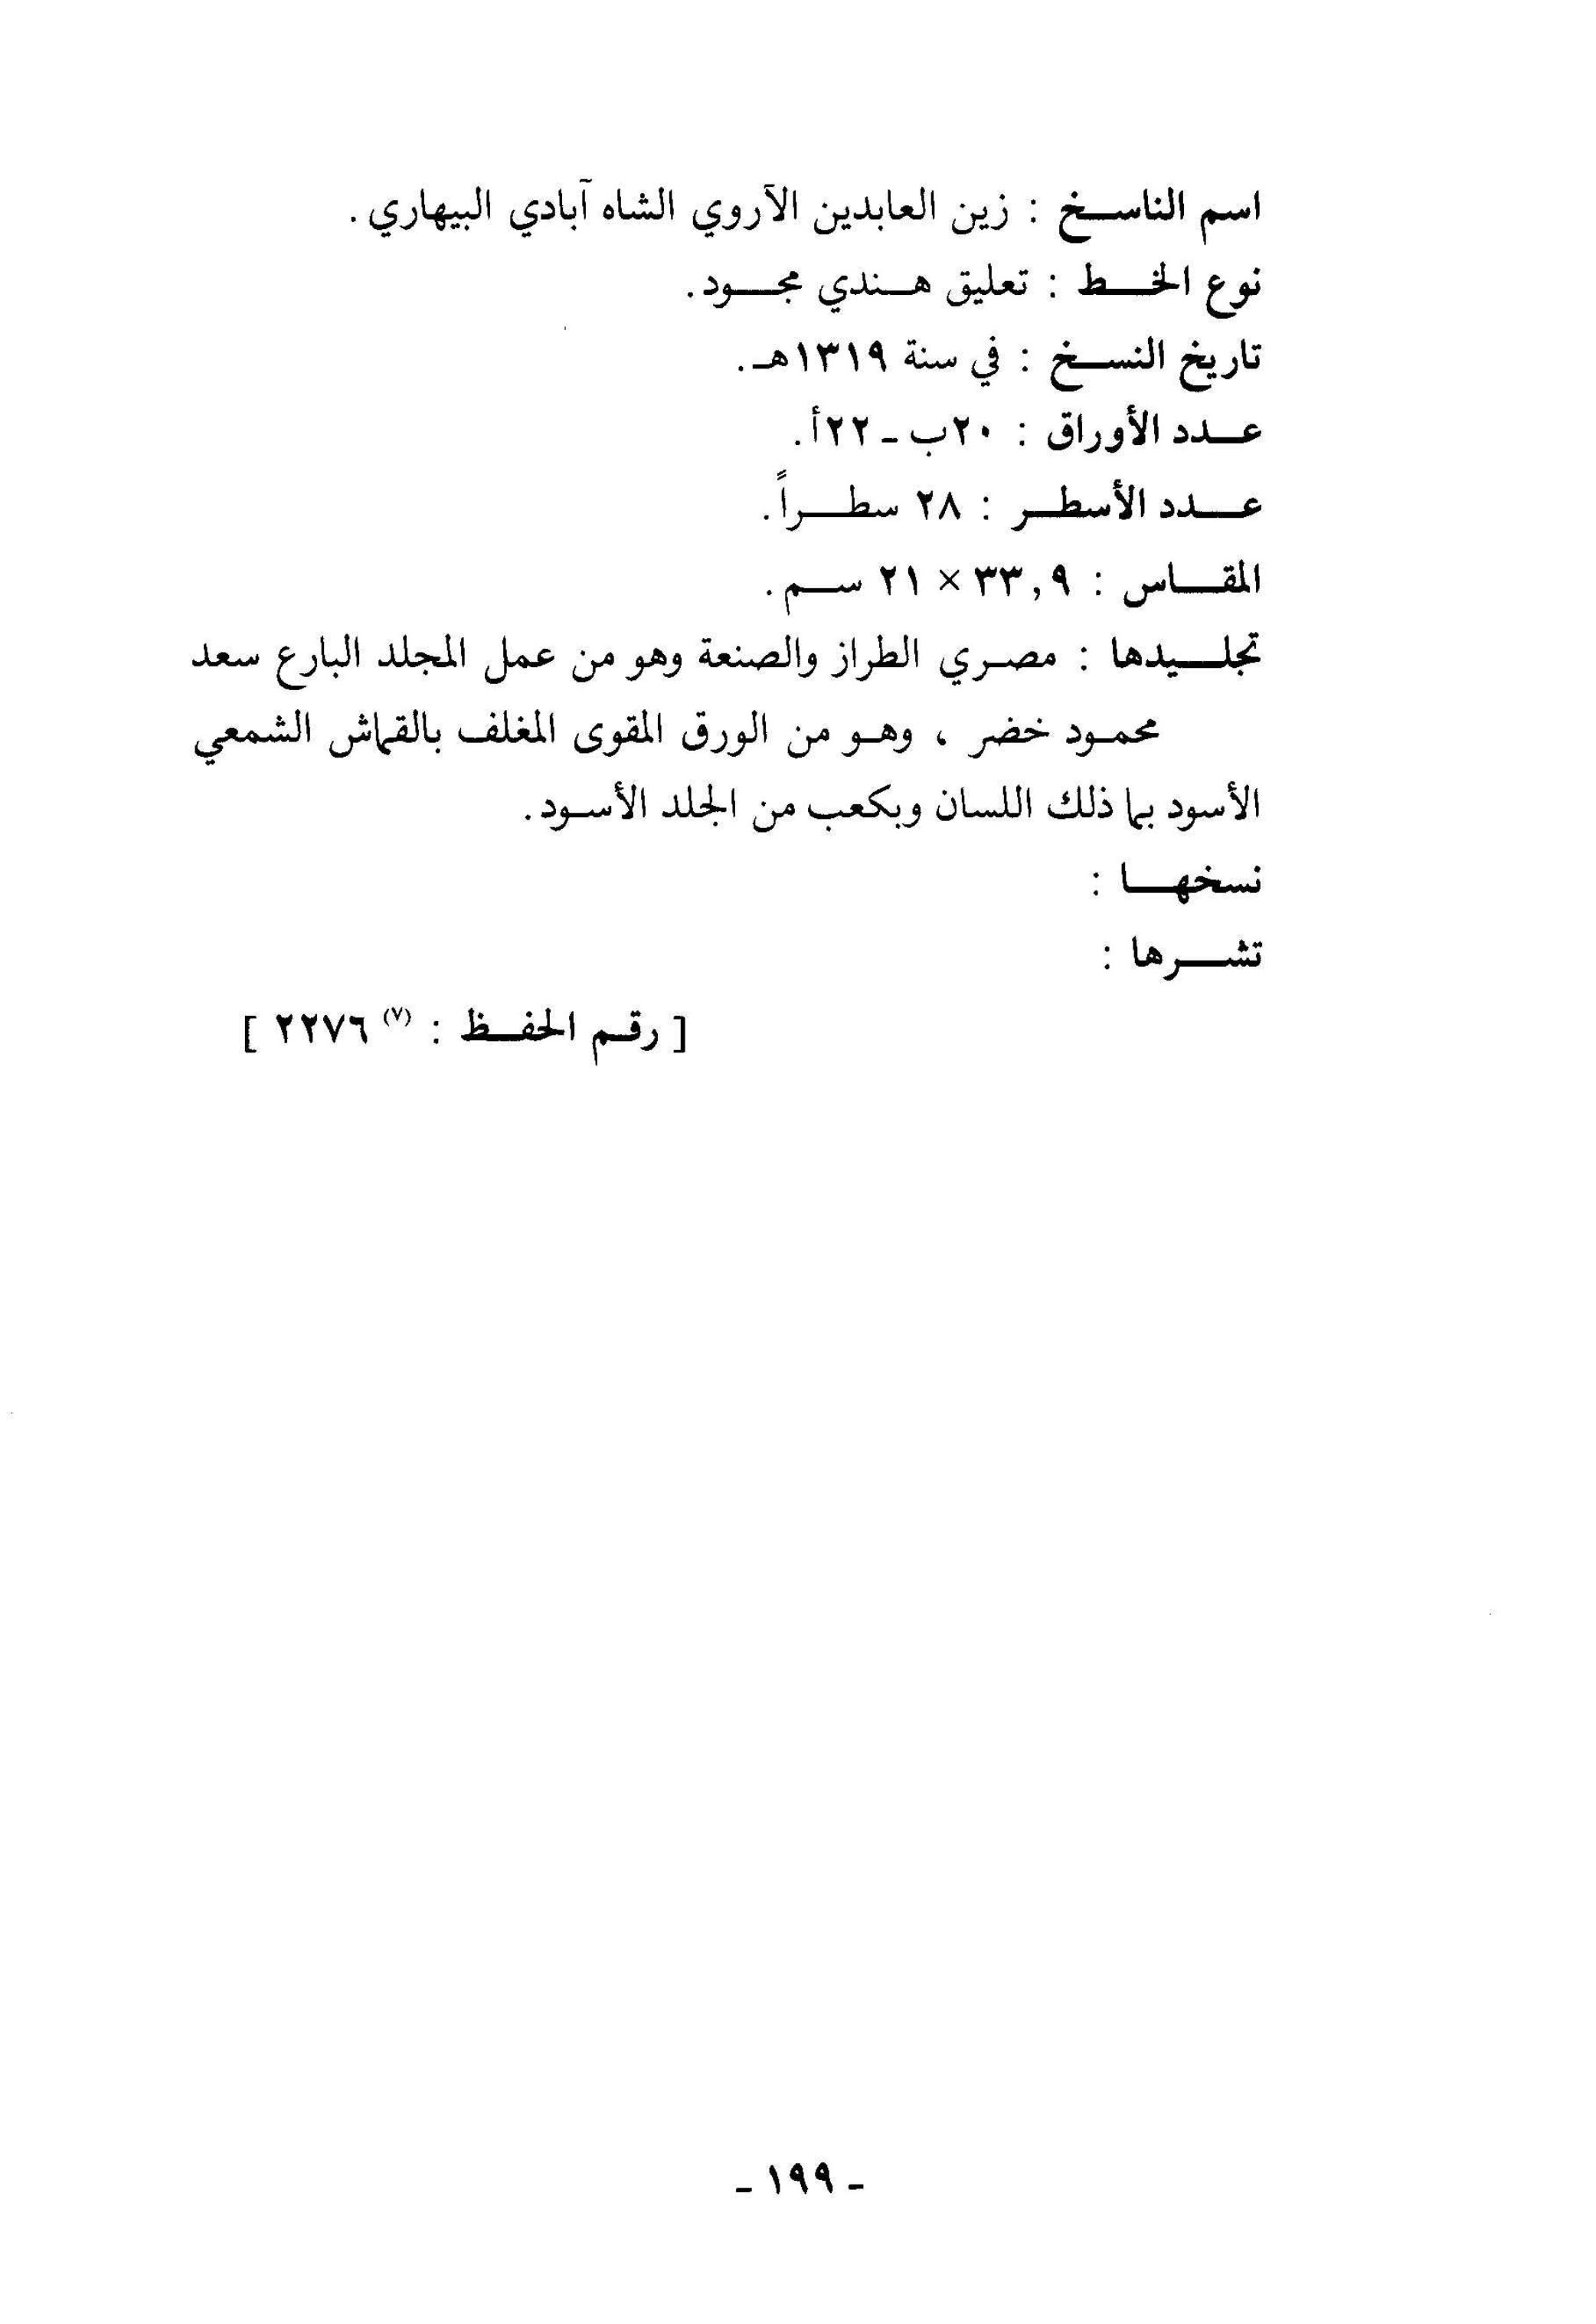 اسم الناسخ : زين العابدين الآروي الشاه آبادي البيهاري .
نوع الخط : تعليق هندي مجود.
تاريخ النسخ : في سنة ١٣١٩هـ .
عدد الأوراق : ٢٠ب - ٢٢أ.
عدد الأسطر : ٢٨ سطراً.
المقاس : ٣٣,٩ × ٢١ سم.
تجليدها : مصري الطراز والصنعة وهو من عمل المجلد البارع سعد
محمود خضر ، وهو من الورق المقوى المغلف بالقماش الشمعي
الأسود بما ذلك اللسان وبكعب من الجلد الأسود.
نسخها :
تشرها :
[ رقم الحفظ : (٧) ٢٢٧٦ ]
- ١٩٩ -